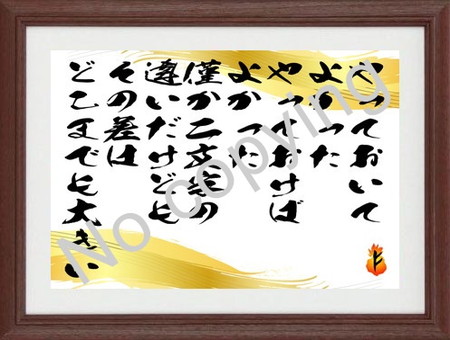 やっておいて
よかった
やっておけば
よかった
僅か二文字の
違いだけども
その差は
どこまでも大きい
No copying